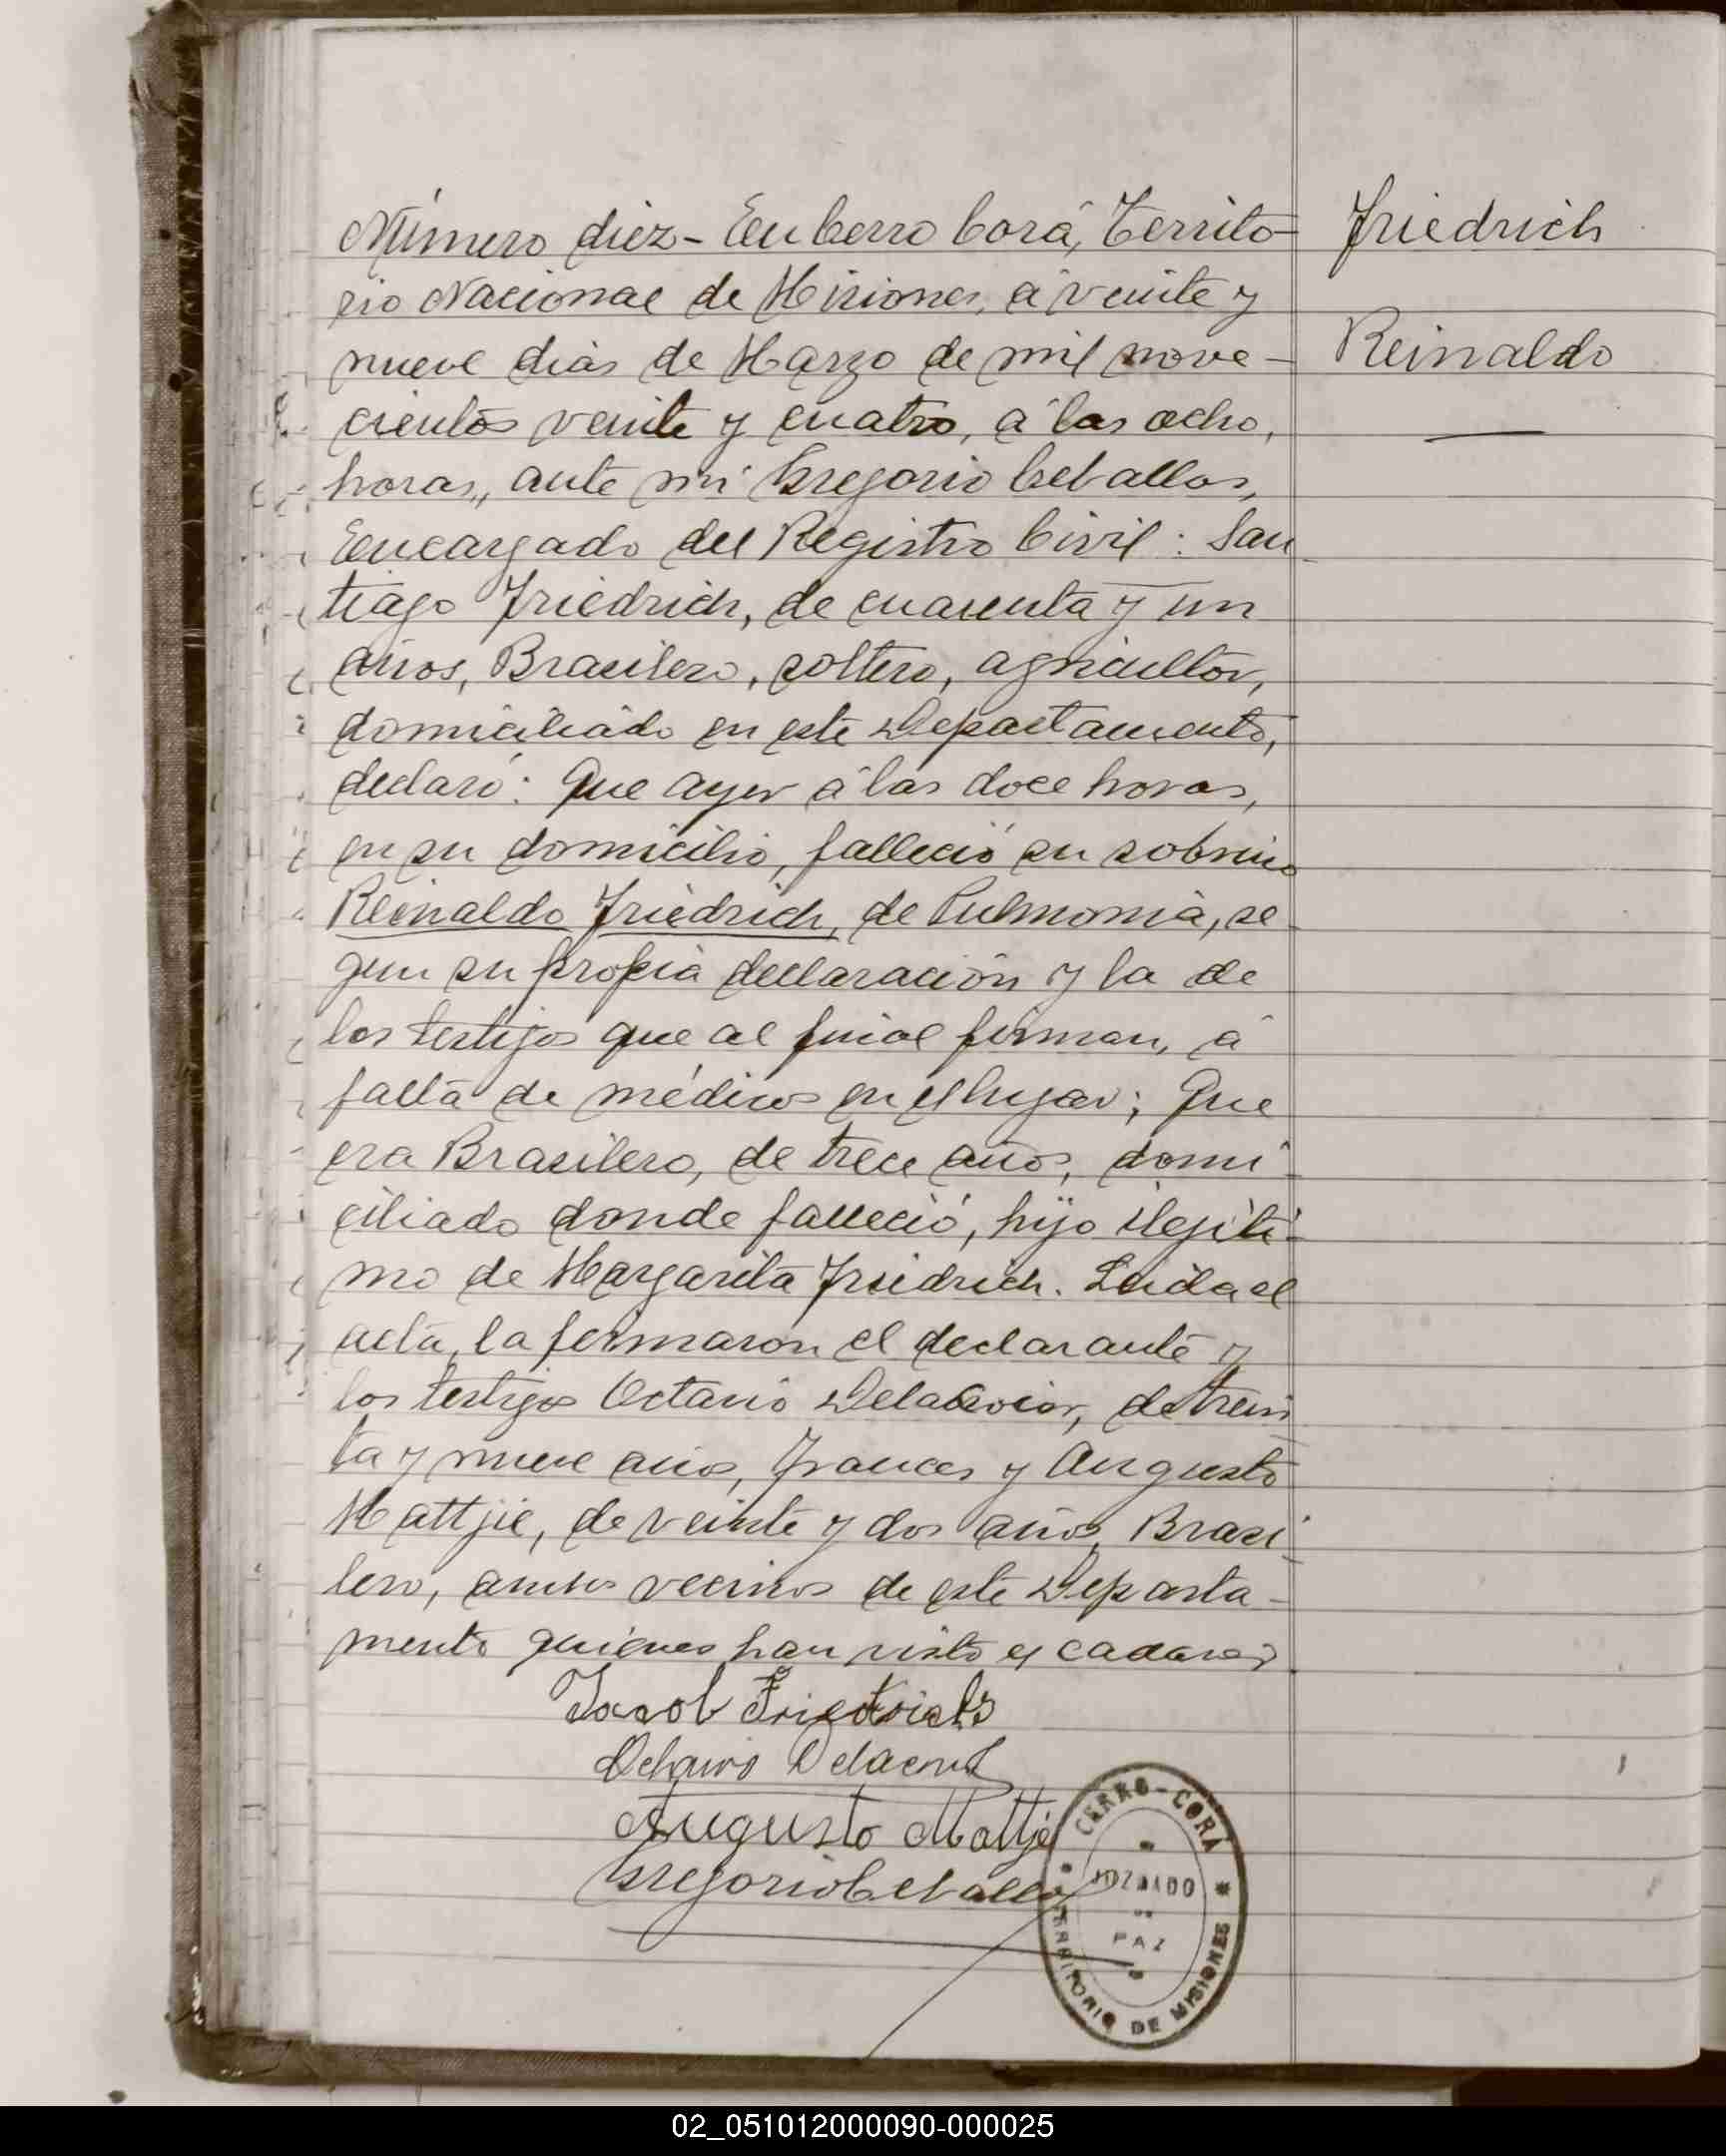 Friedrich
Reinaldo
Número diez - En Cerro Corá, Territo-
rio Nacional de Misiones, á veinte y
nueve dias de Marzo de mil nove-
cientos veinte y cuatro, á las ocho,
horas, ante mi Gregorio Ceballos,
Encargado del Registro Civil: San
tiago Friedrich, de cuarenta y un
años, Brasilero, soltero, agricultor,
domiciliado en este Departamento,
declaró: Que ayer á las doce horas,
en su domicilio, falleció su sobrino
Reinaldo Friedrich, de Pulmonia, se-
gun su propia declaración y la de
los testigos que al final firman, á
falta de médicos en el lugar; Que
era Brasilero, de trece años, domi-
ciliado donde falleció, hijo ilegiti-
mo de Margarita Friedrich. Leida el
acta, la firmaron el declarante y
los testigos Octavio de trein
ta y nueve años, Frances y Augusto
Mattjie, de veinte y dos años, Brasi-
lero, ambos vecinos de este Departa-
mento quienes han visto el cadaver.
Jacob Friedrichs
Augusto Mattje
Gregorio Ceballos
CERRO-CORÁ
JUZGADO
DE
PAZ
TERRITORIO DE MISIONES
02_051012000090-000025